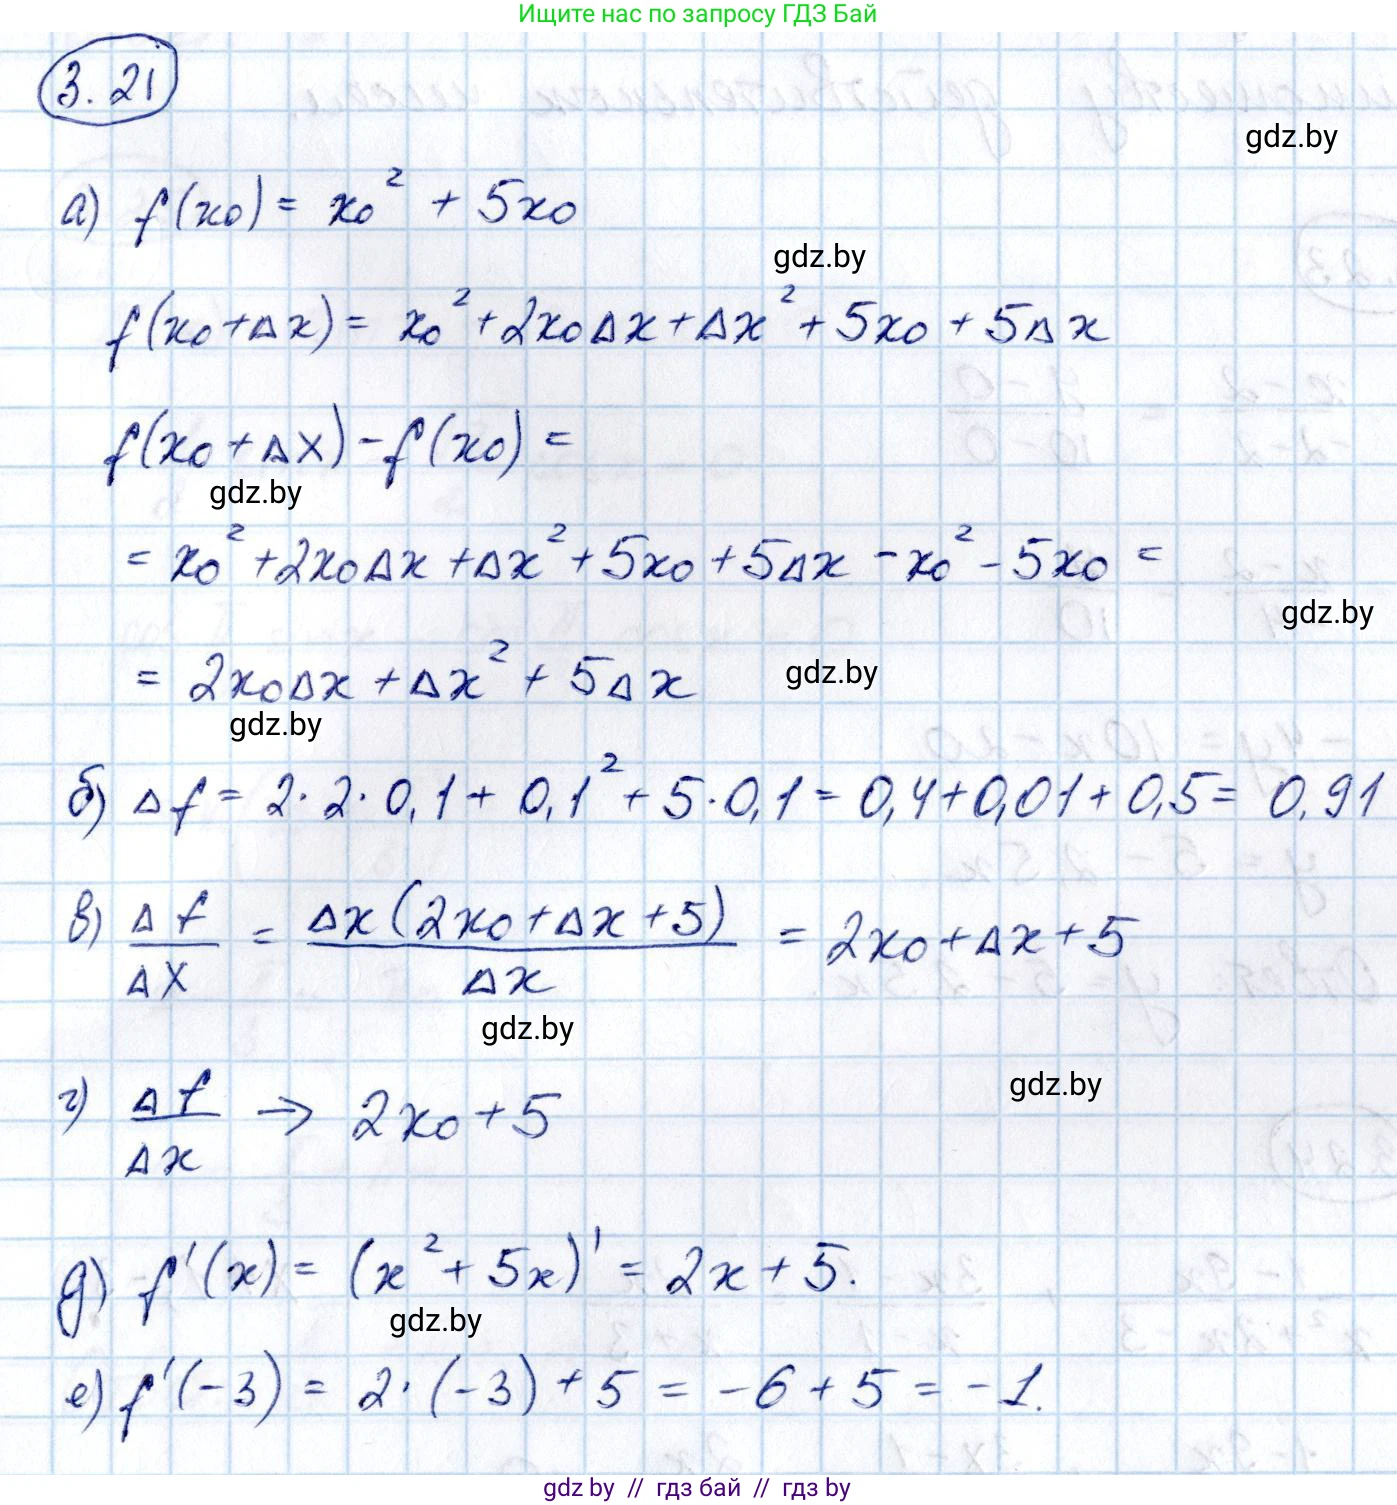 Ищите нас по запросу ГДЗ Бай
3.21
gdz.by
а) f(x₀) = x₀² + 5x₀
gdz.by
f(x₀+Δx) = x₀² + 2x₀Δx + Δx² + 5x₀ + 5Δx
f(x₀+Δx) - f(x₀) =
gdz.by
= x₀² + 2x₀Δx + Δx² + 5x₀ + 5Δx - x₀² - 5x₀ =
gdz.by
= 2x₀Δx + Δx² + 5Δx
gdz.by
gdz.by
б) Δf = 2·2·0,1 + 0,1² + 5·0,1 = 0,4 + 0,01 + 0,5 = 0,91
в) Δf/Δx = Δx(2x₀ + Δx + 5)/Δx = 2x₀ + Δx + 5
gdz.by
gdz.by
г) Δf/Δx → 2x₀ + 5
д) f'(x) = (x² + 5x)' = 2x + 5.
gdz.by
е) f'(-3) = 2·(-3) + 5 = -6 + 5 = -1.
gdz by // гдз бай // гдз by